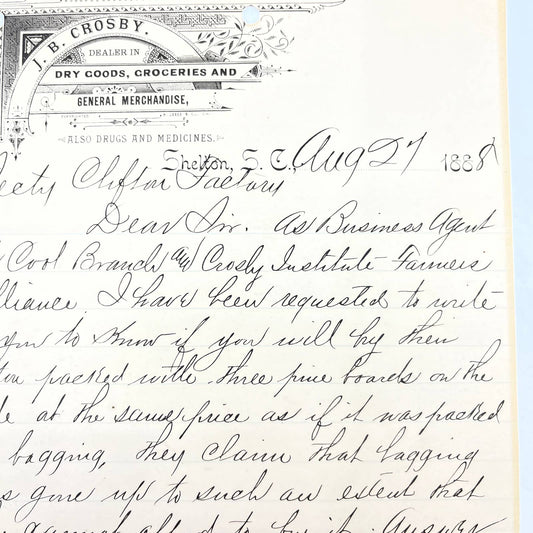 J. B. CROSBY.
DEALER IN
DRY GOODS, GROCERIES AND
GENERAL MERCHANDISE,
ALSO DRUGS AND MEDICINES.
Shelton, S. C., Aug 27 1888
Clifton Factory
Dear Sir. As Business Agent
Cool Branch and Crosby Institute Farmers
lliance. I have been requested to write
you to know if you will by their
packed with three pine boards on the
at the same price as if it was packed
bagging, they claim that bagging
gone up to such an extent that
cannot to buy it. Answer